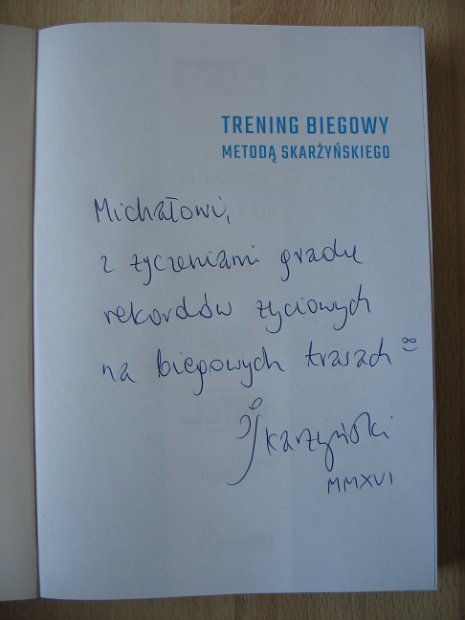 TRENING BIEGOWY
METODĄ SKARŻYŃSKIEGO
Michałowi,
z życzeniami gradu
rekordów życiowych
na biegowych trasach
Skarżyński
MMXVI